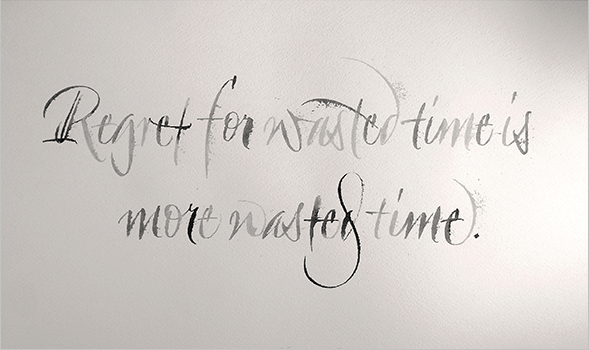 Regret for wasted time is
more wasted time.